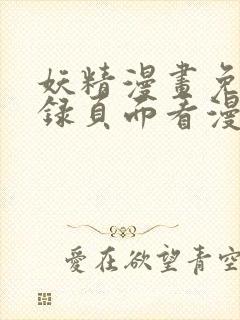 妖精漫畫免
録頁而看漫
愛在欲望青空